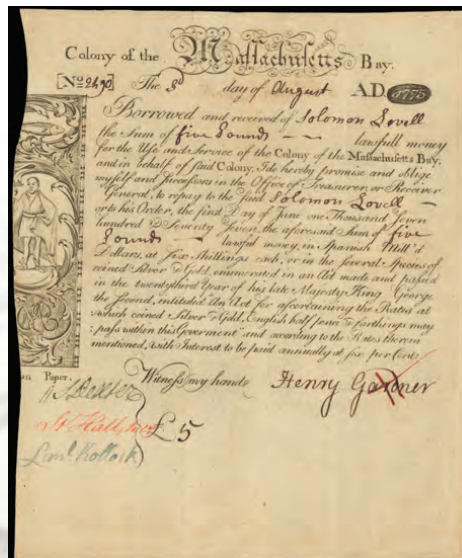 Colony of the Massachusetts Bay.
[No 2490] The 3d day of August AD 1775
Borrowed and received of Solomon Lovell
the Sum of five Pounds lawfull money
for the Use and Service of the Colony of the Massachusetts Bay,
and in behalf of said Colony, I do hereby promise and oblige
myself and Successors in the Office of Treasurer, or Receiver
General, to repay to the said Solomon Lovell
or to his Order, the first Day of June one Thousand Seven
hundred & Seventy Seven, the aforesaid Sum of five
Pounds lawful money, in Spanish Mill'd
Dollars, at six Shillings each, or in the several Species of
coined Silver & Gold, enumerated in an Act made and passed
in the twenty third Year of his late Majesty King George
the Second, intitled An Act for ascertaining the Rates at
which coined Silver & Gold, English half Pence & farthings may
pass within this Goverment and according to the Rates therein
mentioned, with Interest to be paid annually at six per Cent.
Paper.
Witness my hande Henry Gardner
Dexter
Hall
£5
Lem. Kollock